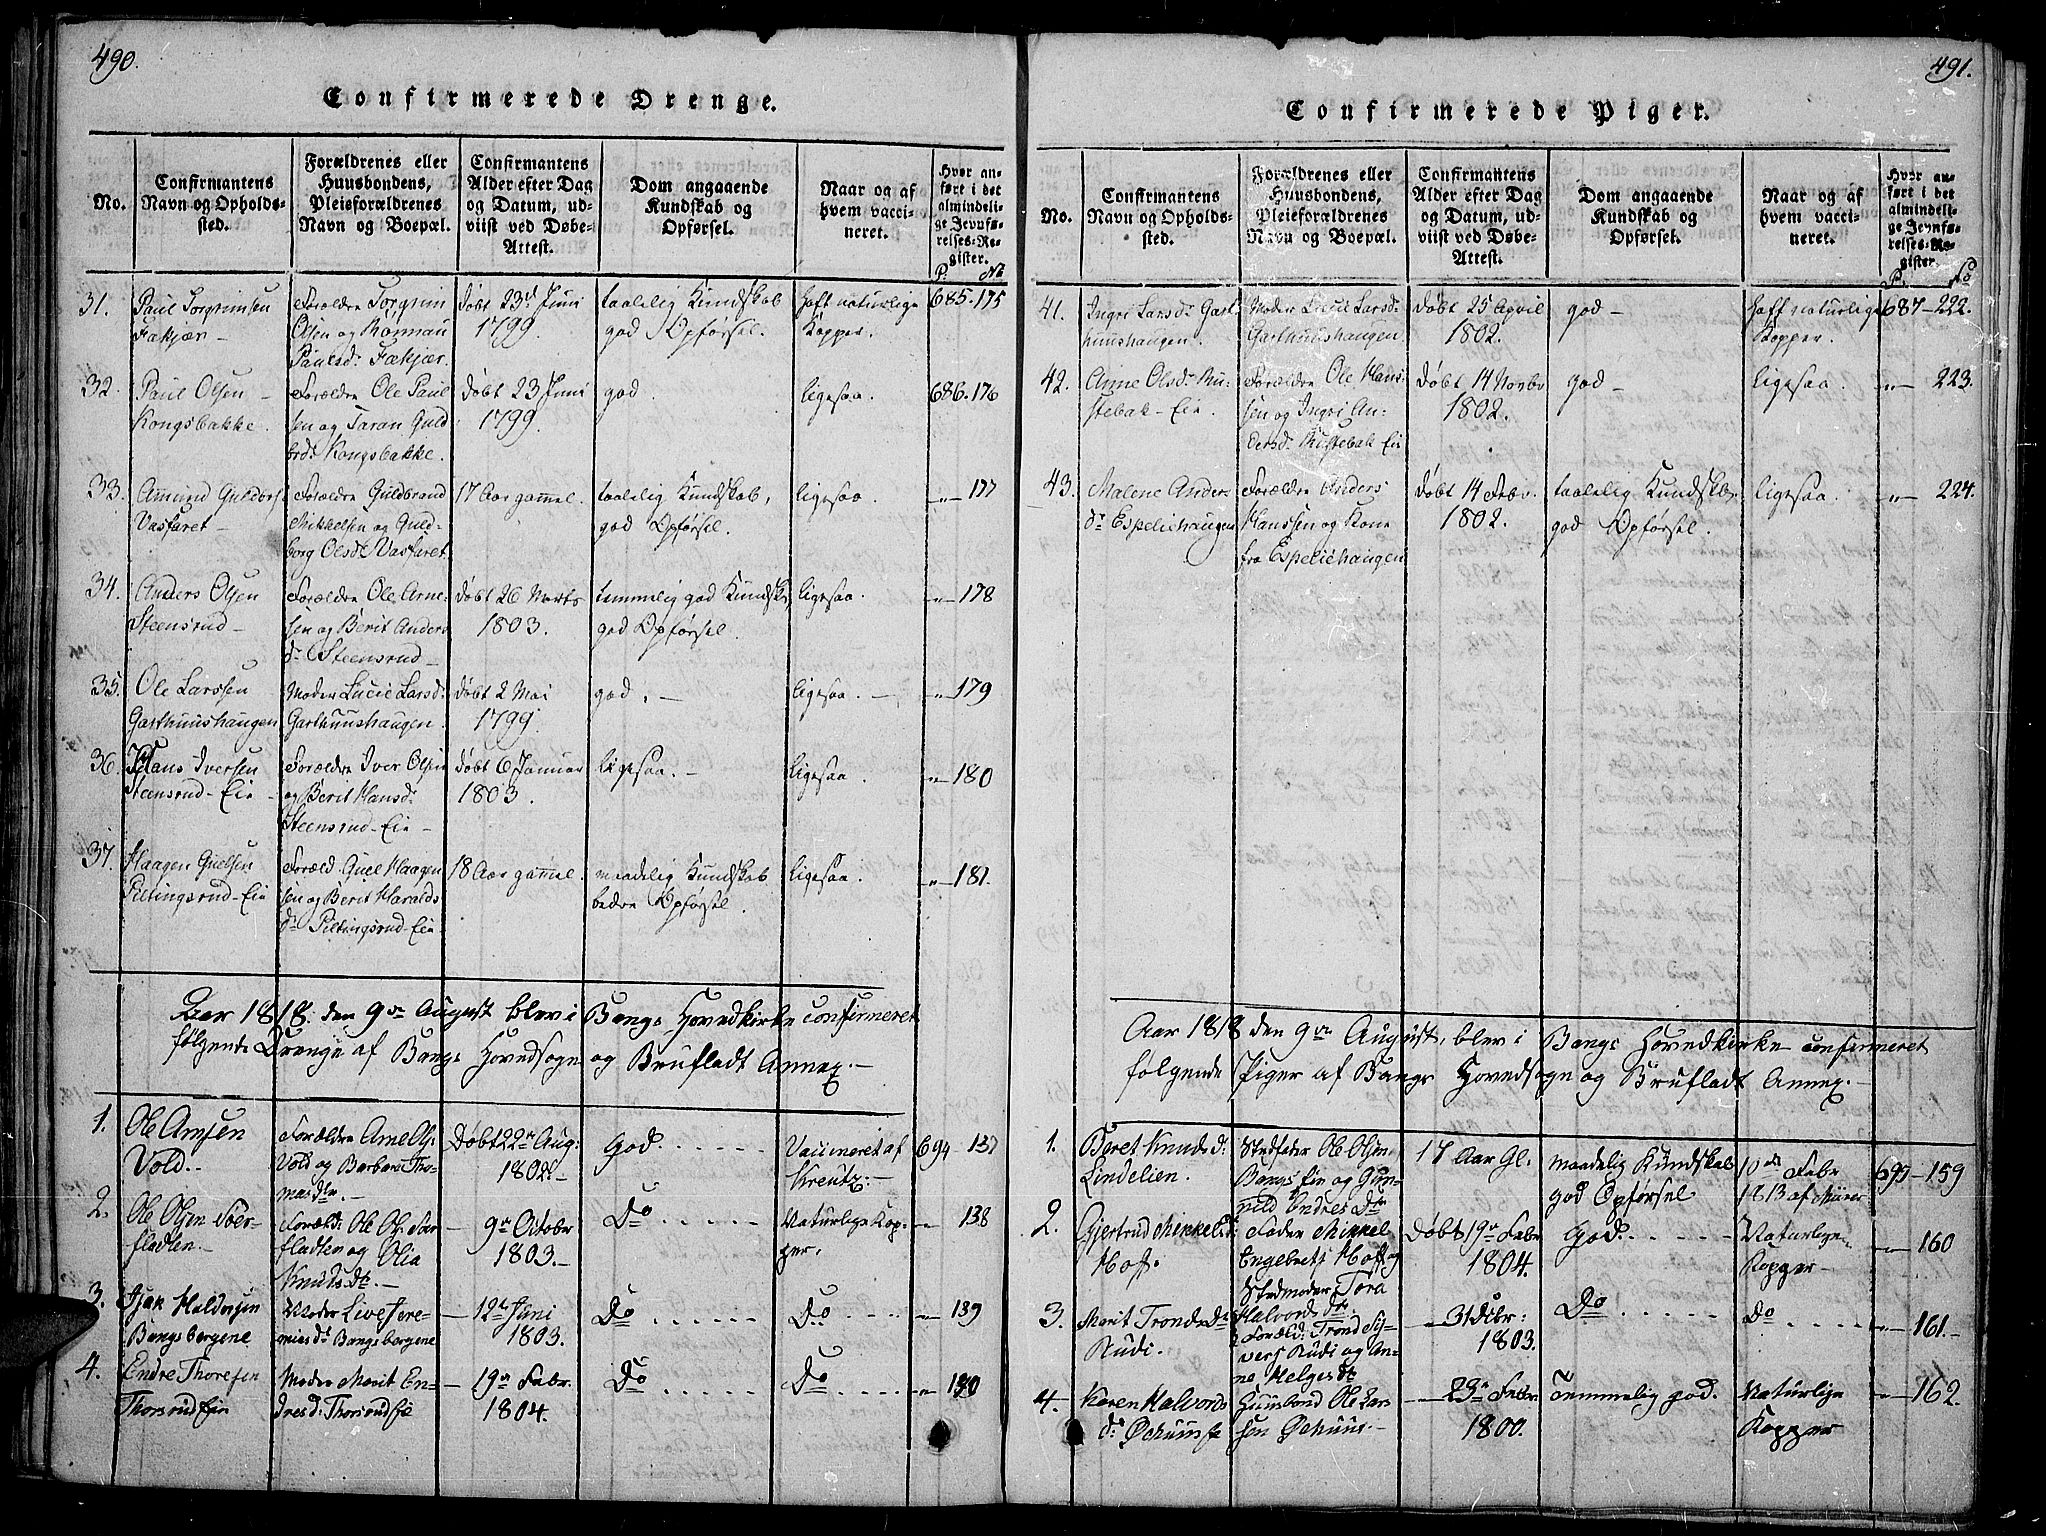 490.
Confirmerede Drenge.
No.
Confirmantens
Navn og Opholds-
sted.
Forældrenes eller
Huusbondens,
Pleieforældrenes
Navn og Boepæl.
Confirmantens
Alder efter Dag
og Datum, ud-
viist ved Døbe-
Attest.
Dom angaaende
Kundskab og
Opførsel.
Naar og af
hvem vacci-
neret.
Hvor an-
ført i det
almindeli-
ge Jevnfø-
relses-Re-
gister.
P. No
31.
Paul Torgrimsen
Fækjær –
Forældre Torgrim
Olsen og Rönnau
Paulsd: Fækjær.
Døbt 23d Juni
1799.
taalelig Kundskab
god Opførsel.
haft naturlige
Kopper.
685. 175
32.
Paul Olsen
Kongsbakke.
Forældre Ole Paul
sen og Taran Guld
brd: Kongsbakke.
Døbt 23 Juni
1799.
god.
ligesaa.
686. 176
33.
Amund Guldbrs.
Vasfaret –
Forældre Guldbrand
Mikkelsen og Guld-
borg Olsd: Vasfaret.
17 Aar gammel.
taalelig Kundskab,
god Opførsel.
ligesaa.
–"– 177
34.
Anders Olsen
Steensrud –
Forældre Ole Arne-
sen og Berit Anders
dr Steensrud –
Døbt 26 Marts
1803.
temmelig god Kundsk,
god Opførsel.
ligesaa.
–"– 178
35.
Ole Larssen
Garthuushaugen
Moder Lucie Larsd:
Garthuushaugen.
døbt 2 Mai
1799.
god. –
ligesaa. –
–"– 179
36.
Hans Iversen
Steensrud-Eie –
Forældre Iver Olsen
og Berit Hansd:
Steensrud-Eie –
døbt 6 Januar
1803.
ligesaa. –
ligesaa.
–"– 180
37.
Haagen Guelsen
Piltingsrud-Eie
Foræld. Guel Haagen
sen og Berit Haralds
dr Piltingsrud-Eie
18 Aar gammel.
maadelig Kundskab
bedre Opførsel.
ligesaa.
–"– 181.
Aar 1818. den 9de August blev i Bangs Hovedkirke confirmeret
følgende Drenge af Bangs Hovedsogn og Brufladt Annex. –
1.
Ole Arnesen
Vold. –
Forældre Arne Ols:
Vold og Barbara Tho-
masdtr. –
Døbt 22de Aug:
1802. –
God. . . . . .
Vaccineret af
Kreutz: –
694 – 137
2.
Ole Olsen Sør-
fladten. –
Foræld: Ole Ols. Sør
fladten og Olia
Knudsdr. –
– 9de October
1803. –
Do . . . . .
Naturlige Kop-
per.
–"– 138
3.
Isak Haldorsen
Bangsbergene
Moder Live Jere-
miasdr Bangsbergene
– 12te Juni
1803.
Do . . . . . .
Do . . .
–"– 139
4.
Endre Thoresen
Thorsrud Eie
Moder Marit En-
dresd: Thorsrud Eie
– 19de Febr.
1804.
Do . . . . .
Do . . . .
–"– 140
491.
Confirmerede Piger.
No.
Confirmantens
Navn og Opholds-
sted.
Forældrenes eller
Huusbondens,
Pleieforældrenes
Navn og Boepæl.
Confirmantens
Alder efter Dag
og Datum, ud-
viist ved Døbe-
Attest.
Dom angaaende
Kundskab og
Opførsel.
Naar og af
hvem vacci-
neret.
Hvor an-
ført i det
almindeli-
ge Jevnfø-
relses-Re-
gister.
P. No
41.
Ingri Larsd: Gart
huushaugen.
Moder Lucie Larsd:
Garthuushaugen.
Døbt 25 April
1802.
god –
haft naturlige
Kopper.
687 – 222.
42.
Anne Olsd: Ru-
stebak-Eie.
Forældre Ole Hans-
sen og Ingri An-
dersd: Rustebak Eie
Døbt 14 Novbr
1802.
god –
ligesaa.
–"– 223.
43.
Malene Anders
dr Espeliehaugen
Forældre Anders
Hanssen og Kone
fra Espeliehaugen
Døbt 14 Febr.
1802.
taalelig Kundskb,
god Opførsel.
ligesaa.
–"– 224.
Aar 1818 den 9de August, blev i Bangs Hovedkirke confirmeret
følgende Piger af Bangs Hovedsogn og Brufladt Annex. –
1.
Beret Knudsdr
Lindelien.
Stedfader Ole Olsen
Bangs Eie og Gun-
nild Endres Dtr
17 Aar Gl.
maadelig Kundskab
god Opførsel
10de Febr
1813 af Miirer
699 – 159
2.
Gjertrud Mikkelsdr
Hoff.
Fader Mikkel
Engebrets: Hoff og
Stedmoder Tora
Halvordsdtr
Døbt 19de Febr
1804.
God. . . . . .
Naturlige
Kopper –
–"– 160
3.
Marit Trondsdr
Rudi.
Foræld: Trond Sy-
vers Rudi og An-
ne Helgesdtr
– 31 Dcbr:
1803.
Do . . . . .
Do . . . .
–"– 161. –
4.
Karen Halvords
dr Øchuus
Huusbond Ole Lars
sen Øchuus –
– 23de Febr
1800.
Temmelig god.
Naturlige
Kopper
–"– 162.